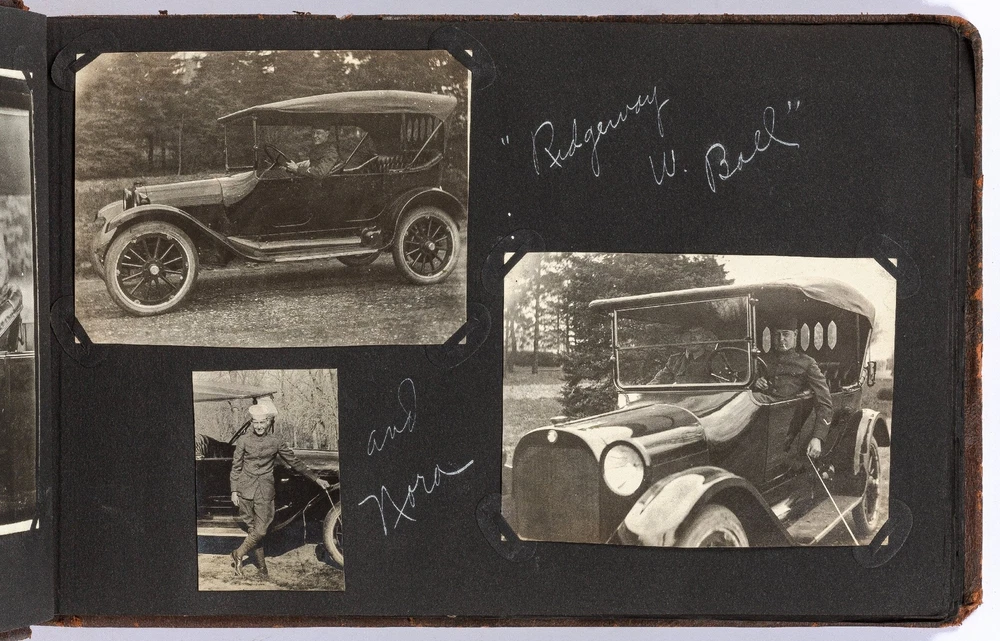 "Ridgeway
W. Ball"
and
Nora